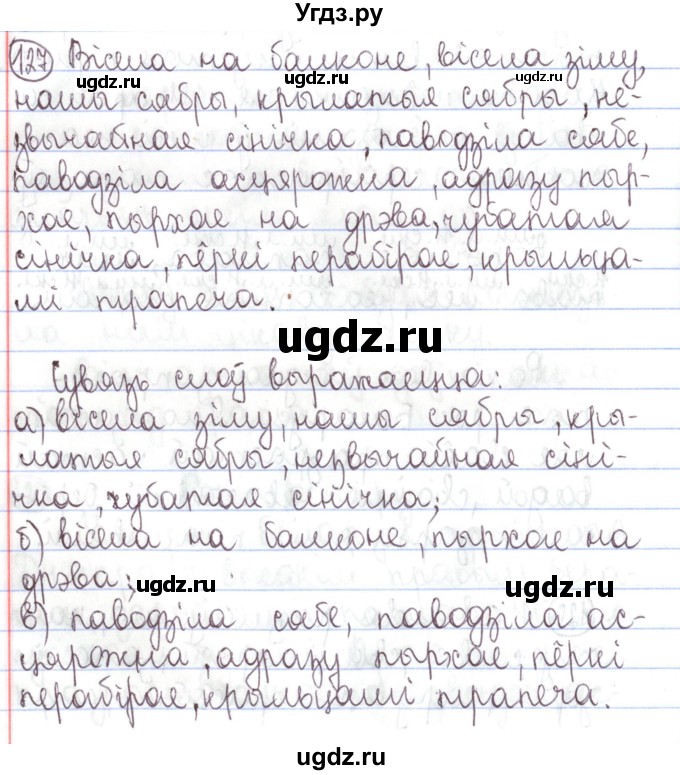 Угдз.ру
127 Вісела на балконе, вісела зіму,
нашы сябры, крылатыя сябры, не-
звычайная сінічка, паводзіла сябе,
паводзіла асцярожна, адразу пыр-
хае, пырхае на дрэва, чубатая
сінічка, пёркі перабірае, крыльца-
мі трапеча.
Сувязь слоў выражаецца:
а) вісела зіму, нашы сябры, кры-
латыя сябры, незвычайная сіні-
чка, чубатая сінічка;
б) вісела на балконе, пырхае на
дрэва;
в) паводзіла сябе, паводзіла ас-
цярожна, адразу пырхае, пёркі
перабірае, крыльцамі трапеча.
ugdz.ru
ugdz.ru
ugdz.ru
ugdz.ru
ugdz.ru
ugdz.ru
ugdz.ru
ugdz.ru